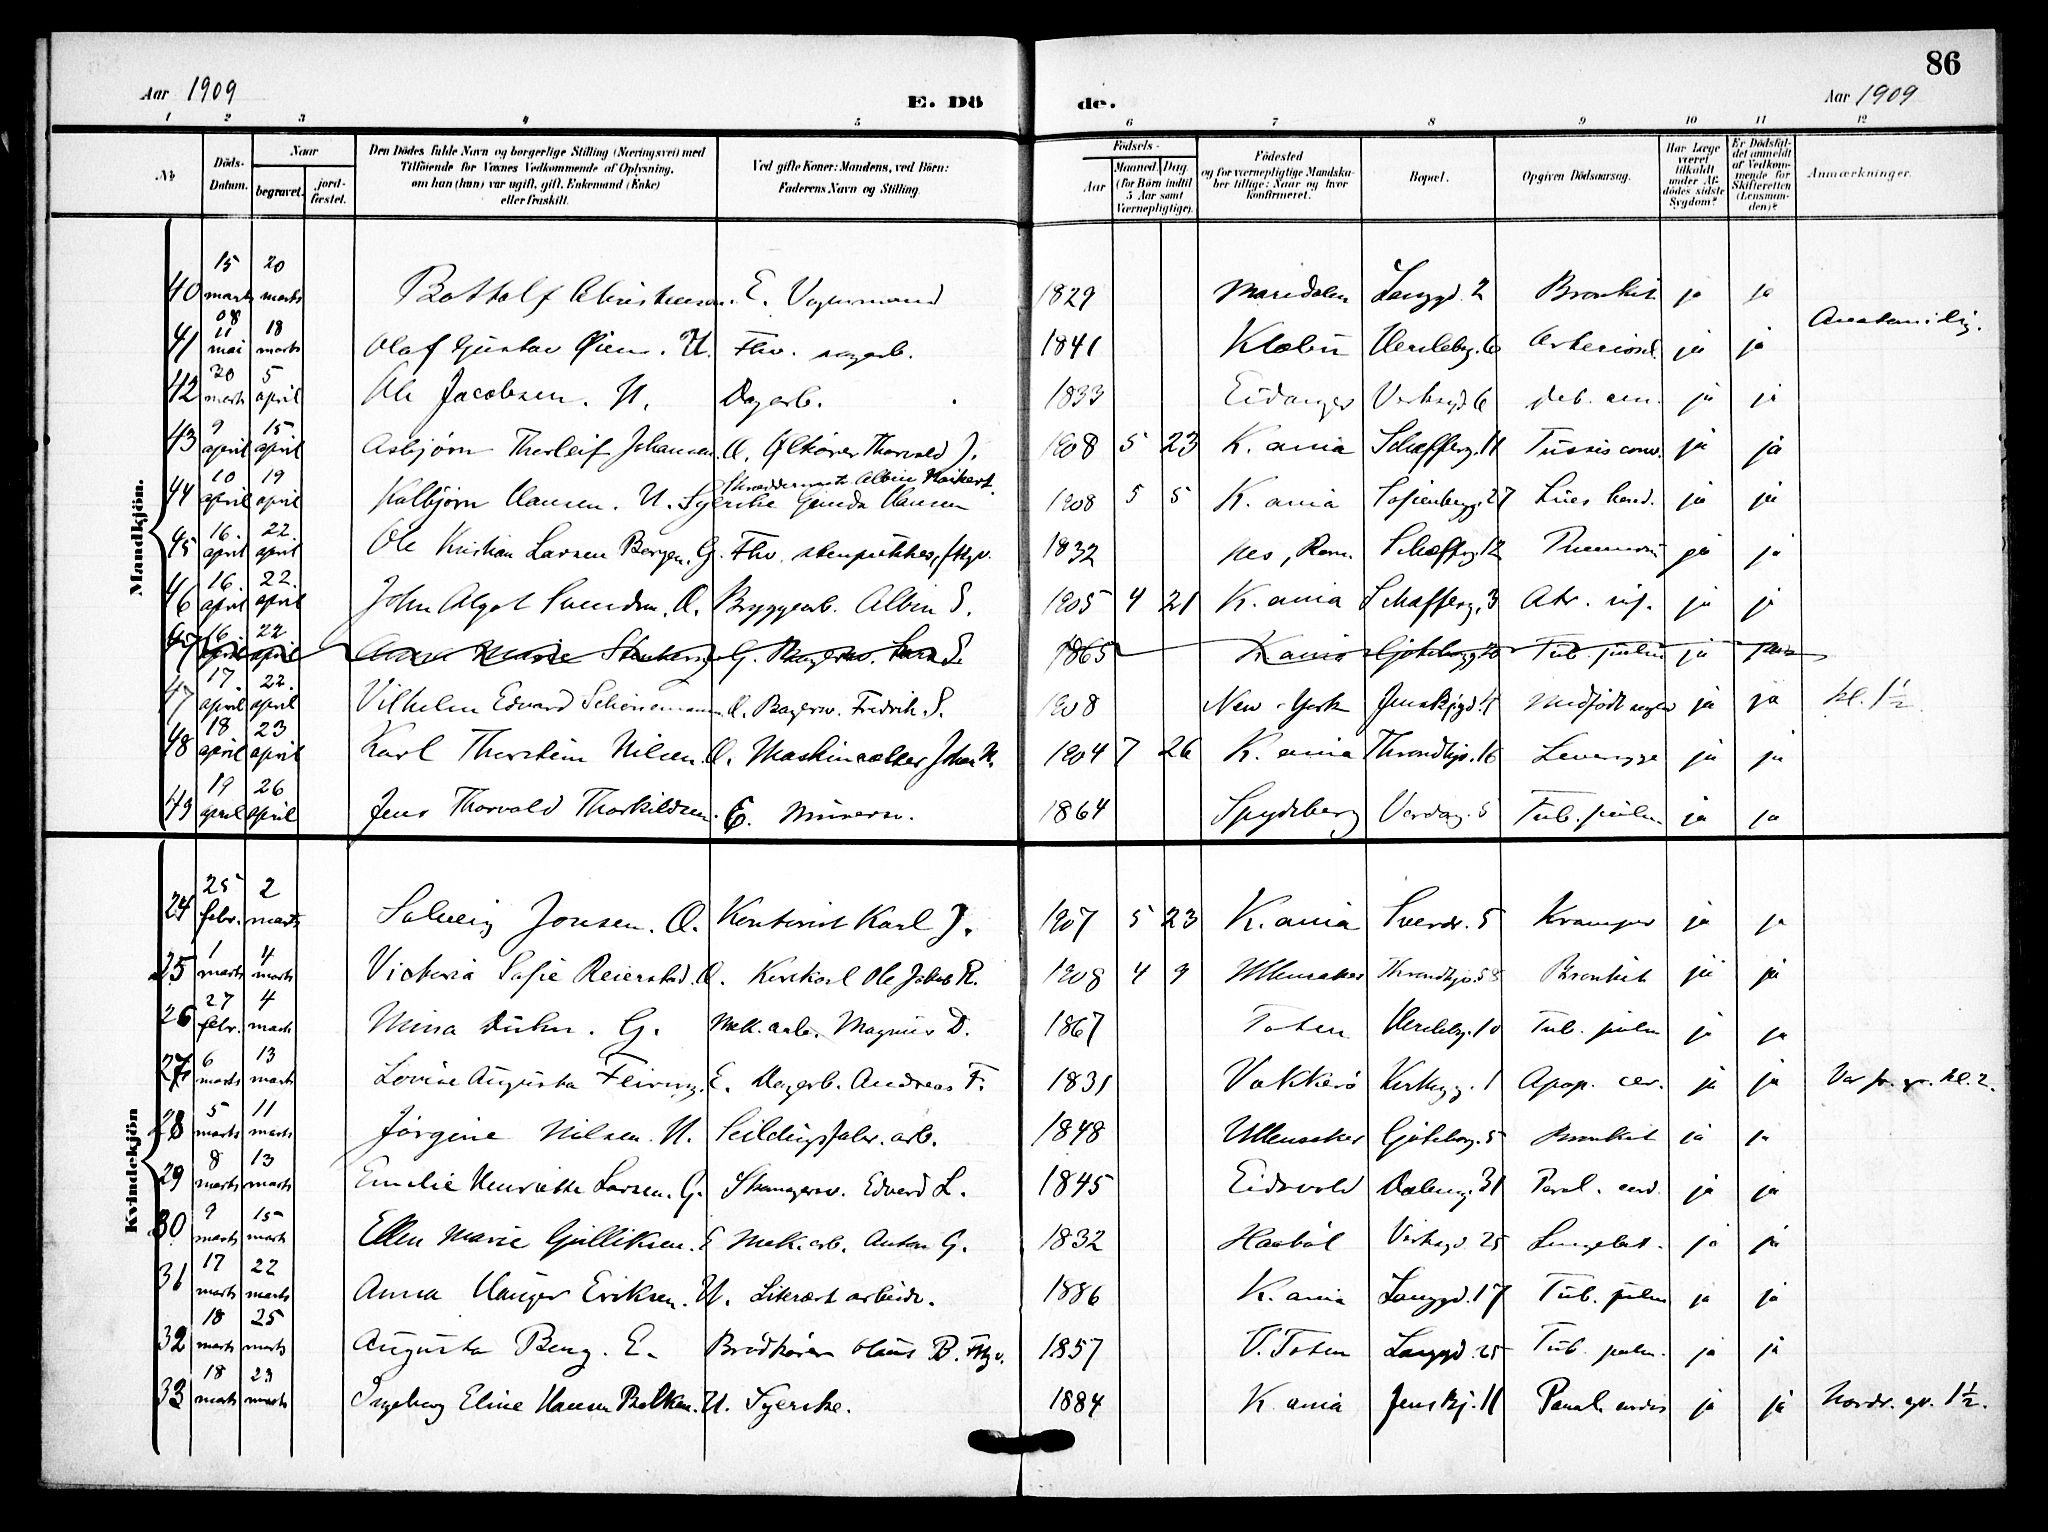 86
Aar 1909
E. Dö
de.
Aar 1909
1 2 3 4 5 6 7 8 9 10 11 12
No.
Döds-Datum.
Naar
begravet.
jordfæstet.
Den Dödes fulde Navn og borgerlige Stilling (Næringsvei) med Tilföiende for Voxnes Vedkommende af Oplysning, om han (hun) var ugift, gift, Enkemand (Enke) eller fraskilt.
Ved gifte Koner: Mandens, ved Börn: Faderens Navn og Stilling.
Födsels-
Aar
Maaned. Dag.
(for Börn indtil 5 Aar samt Værnepligtige).
Födested og for værnepligtige Mandskaber tillige: Naar og hvor konfirmeret.
Bopæl.
Opgiven Dödsaarsag.
Har Læge været tilkaldt under Afdödes sidste Sygdom?
Er Dödsfaldet anmeldt af Vedkommende for Skifteretten (Lensmanden)?
Anmærkninger.
Mandkjön.
40 15 marts 20 marts Bottolf Christensen. E. Vognmand 1829 Maridalen Langgd. 2 Bronkit ja ja
41 08 11 mai 18 marts Olaf Gustav Öien. U. Fhv. 1841 Klæbu Herslebg. 6 Arterioscl. ja ja
42 20 marts 5 april Ole Jacobsen. U. Dagarb. 1833 Eidanger Verksgd 6 Deb. sen. ja ja
43 9 april 15 april Asbjörn Thorleif Johansen. U. Ölkjörer Thorvald J. 1908 5 23 K.ania Schaffteg. 11 Tussis conv. ja ja
44 10 april 19 april Kolbjörn Hansen. U. Syerske Gunda Hansen 1908 5 5 K.ania Sofienbergg. 27 Lues hered. ja ja
45 16. april 22. april Ole Kristian Larsen Bergen. G. Fhv. stenpukker, 1832 Nes, Rom. Schaffteg. 12 Pneumoni ja ja
46 16. april 22. april John Algot Svendsen. U. Bryggearb. Albin S. 1905 4 21 K.ania Schaffteg. 3 ja ja
47 16. april 22 april Anna Marie G. 1865 K.ania Göteborgg 20 Tub. pulm ja
47 17. april 22. april Vilhelm Edvard Schönemann. U. Bagersv. Fredrik S. 1908 New-York Jenskjgd. Medfödt ja ja kl. 1½
48 18 april 23 april Karl Thorstein Nilsen. U. Maskin Johan N. 1904 7 26 K.ania Throndhjv. 16 ja ja
49 19 april 26 april Jens Thorvald Thorkildsen. E. Murersv. 1864 Spydeberg 5 Tub. pulm. ja ja
Kvindekjön
24 25 febr. 2 marts Solveig Jonsen. U. Kontorist Karl J. 1907 5 23 K.ania Sverdr. 5 Kramper ja ja
25 1 marts 4 marts Victoria Sofie Reierstad. U. Ole Jakob R. 1908 4 9 Ullensaker Throndhjv. Bronkit ja ja
26 27 febr. 4 marts Mina Duhn. G. Mek. arb. Magnus D. 1867 Toten Herslebg. 10 Tub. pulm ja ja
27 6 marts 13 marts Lovise Augusta Feiring. E. Dagarb. Andreas F. 1831 Vækkerö 1 Apop. cer. ja ja
28 5 marts 11 marts Jörgine Nilsen. U. Seildugsfabr. arb. 1848 Ullensaker Göteborg. 5 Bronkit ja ja
29 8 marts 13 marts Emelie Henriette Larsen. G. Edvard L. 1845 Eidsvold 31 Paral. cord. ja ja
30 9 marts 15 marts Ellen Marie Gulliksen. E Mek. arb. Anton G. 1832 Haaböl Verksgd. 25 ja ja
31 17 marts 22 marts Anna Hauger Eriksen. U. 1886 K.ania Langgd. 17 Tub. pulm ja ja
32 18 marts 25 marts Augusta Berg. E. Brödkjörer Olaus B. 1857 V. Toten Langgd. 25 Tub. pulm. ja ja
33 18 marts 23 marts Ingeborg Eline Hansen U. Syerske. 1884 K.ania Jenskj. 11 Paral. cordis ja ja Nordr. gr. 1½.